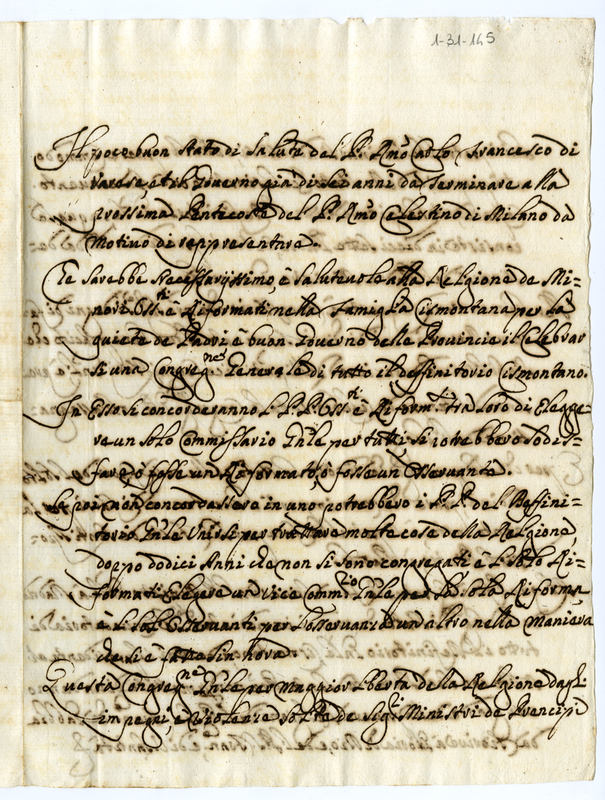 1-31-145
Il poco buon stato di salute del P. Rmo Carlo Francesco di
Varese, et il Governo già di sei anni da terminare alla
prossima Pentecoste del P. Rmo Celestino di Milano da
motivo di rappresentare.
Che sarebbe necessarijssimo, è salutevole alla Relgione de Mi=
nori Oss.ti è Riformati nella famiglia Cismontana per la
quiete de Padri è buon Governo delle Provincie il Celebrar
si una Congreg.ne Generale di tutto il deffinitorio Cismontano.
In Esso si concorderanno l. P.P. Oss.ti è Riform.ti tra loro di Elegge=
re un solo Commissario Gnle per tutti si potrebbero sodis=
fare, ò fosse un Riformato, ò fosse un Osservante.
Se poi non concordassero in uno potrebbero i P.P. del Deffini=
torio Gnle Unirsi per trattare molte cose della Relgione,
doppo dodici Anni che non si sono congregati è l. solo Ri=
formati Elegere un Vice Comm.rio Gnle per la sola Riforma,
è l. soli Osservanti per l'osservanza un altro nella maniera
che si è fatto sin hora.
Questa Congreg.ne Gnle per maggior libertà della Relgione dagli
impegni, è Violenze solite de Sig.ri Ministri de Prencipi